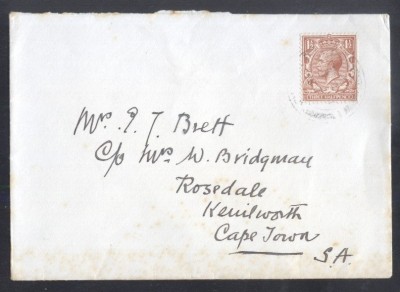 Mrs. E. J. Brett
C/o Mrs W. Bridgman
Rosedale
Kenilworth
Cape Town
S.A.